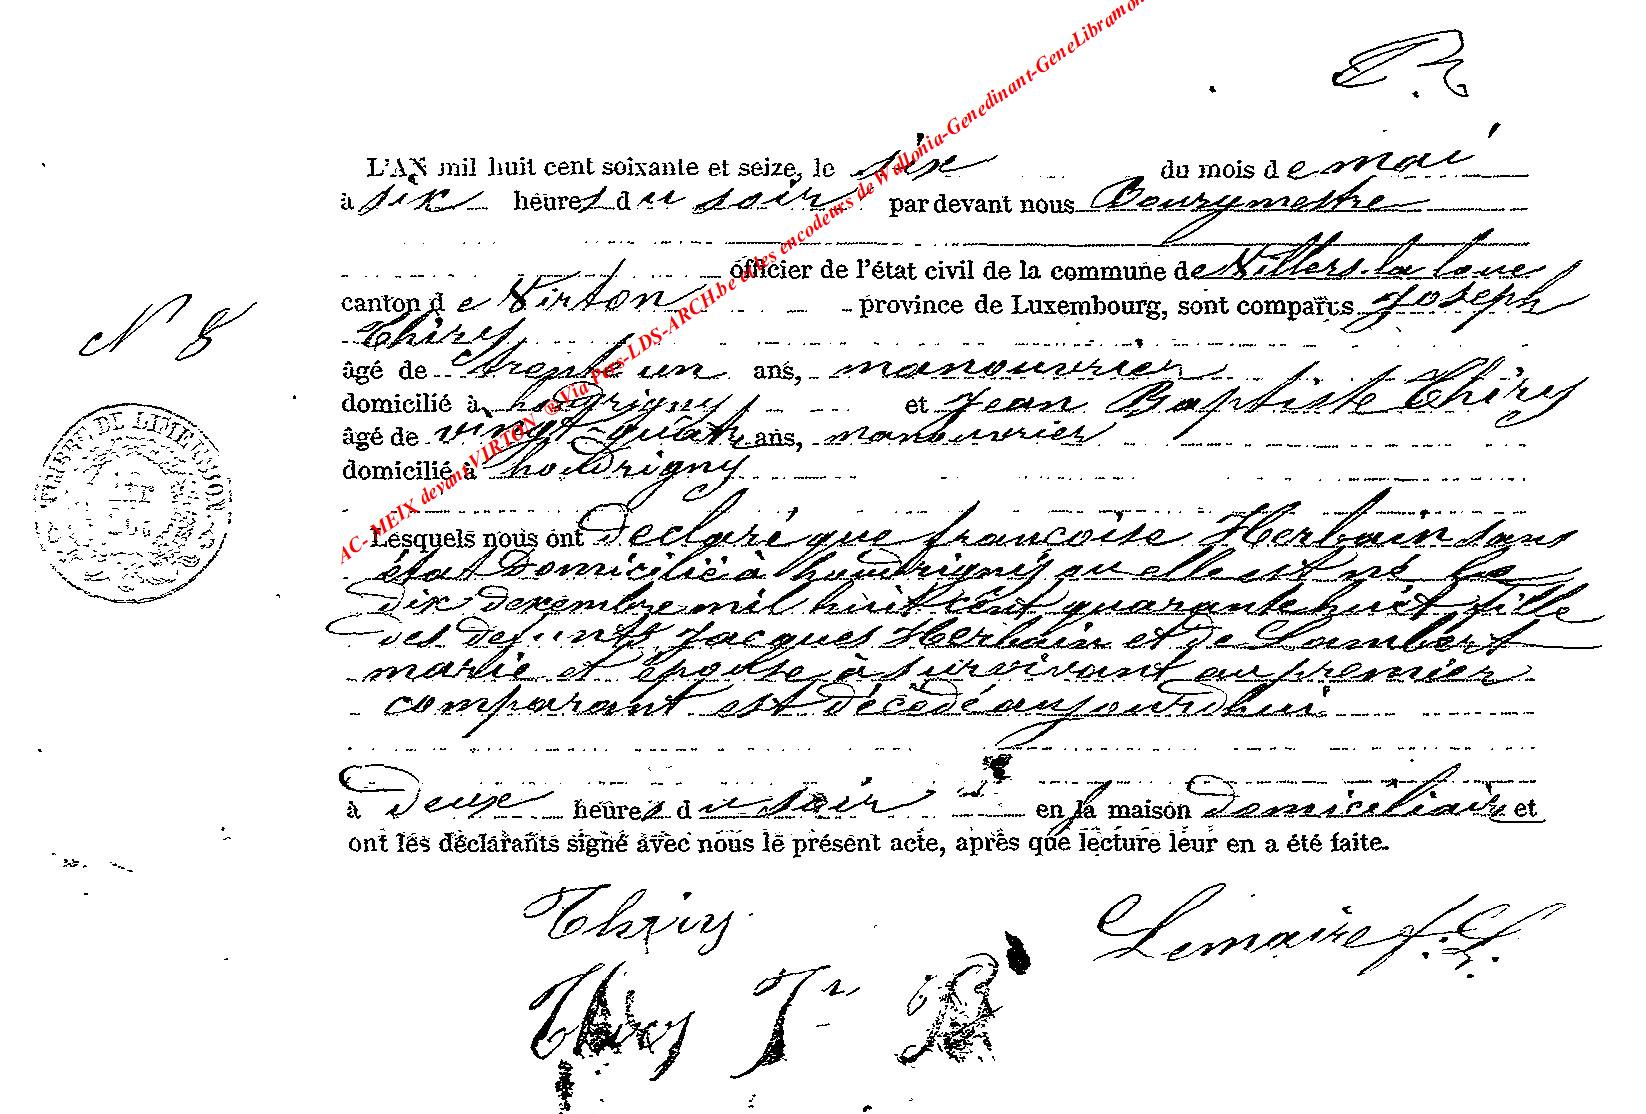 L'AN mil huit cent soixante et seize, le six du mois de mai
à six heures du soir par devant nous Bourgmestre
officier de l'état civil de la commune de Villers-la-loue
canton de Virton province de Luxembourg, sont comparus Joseph
Thiry
N 8
âgé de trente un ans, manouvrier
domicilié à houdrigny et Jean Baptiste Thiry
âgé de vingt-quatre ans, manouvrier
domicilié à houdrigny
TIMBRE DE LIMEUSDON
Lesquels nous ont declaré que francoise Herbain sans
état domicilié à houdrigny ou elle est né le
dix dexembre mil huit cent quarante huit fille
des defunts Jacques Herbain et de Lambert
marie et épouse à survivant au premier
comparant est décédé aujourdhui
à deux heures du soir en la maison domiciliaire et
ont les déclarants signé avec nous le présent acte, après que lecture leur en a été faite.
Thiry
Lemaire f. L.
Thiry Jn Bt
AC- MEIX devant VIRTON ®Via Pros-LDS-ARCH.be et les encodeurs de Wallonia-Genedinant-GeneLibramon